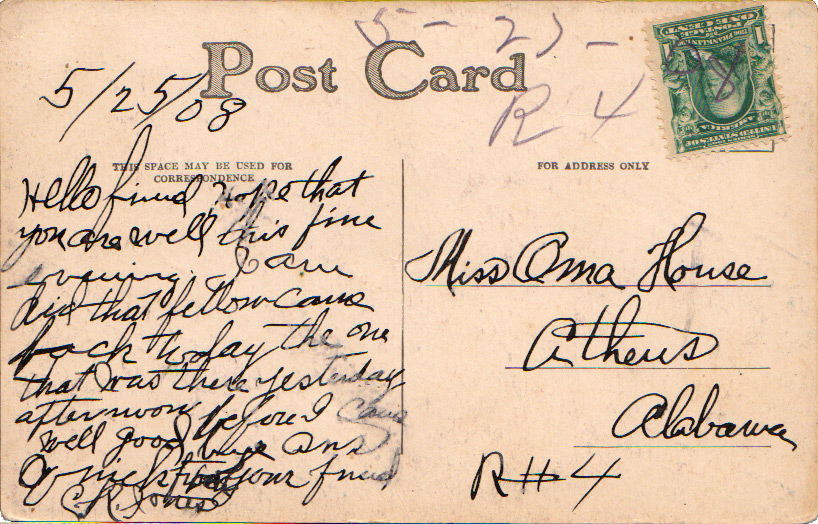 5 - 25 -
Post Card
R 4
08
5/25/08
UNITED STATES OF
AMERICA
FRANKLIN
POSTAGE
ONE CENT
1 1
THIS SPACE MAY BE USED FOR
CORRESPONDENCE
FOR ADDRESS ONLY
Hello friend Hope that
you are well this fine
evening. I am
did that fellow came
back today the one
that was there yesterday
afternoon before I came
well good bye ans
your friend
C. R. Jones
Miss Oma House
Athens
Alabama
R#4